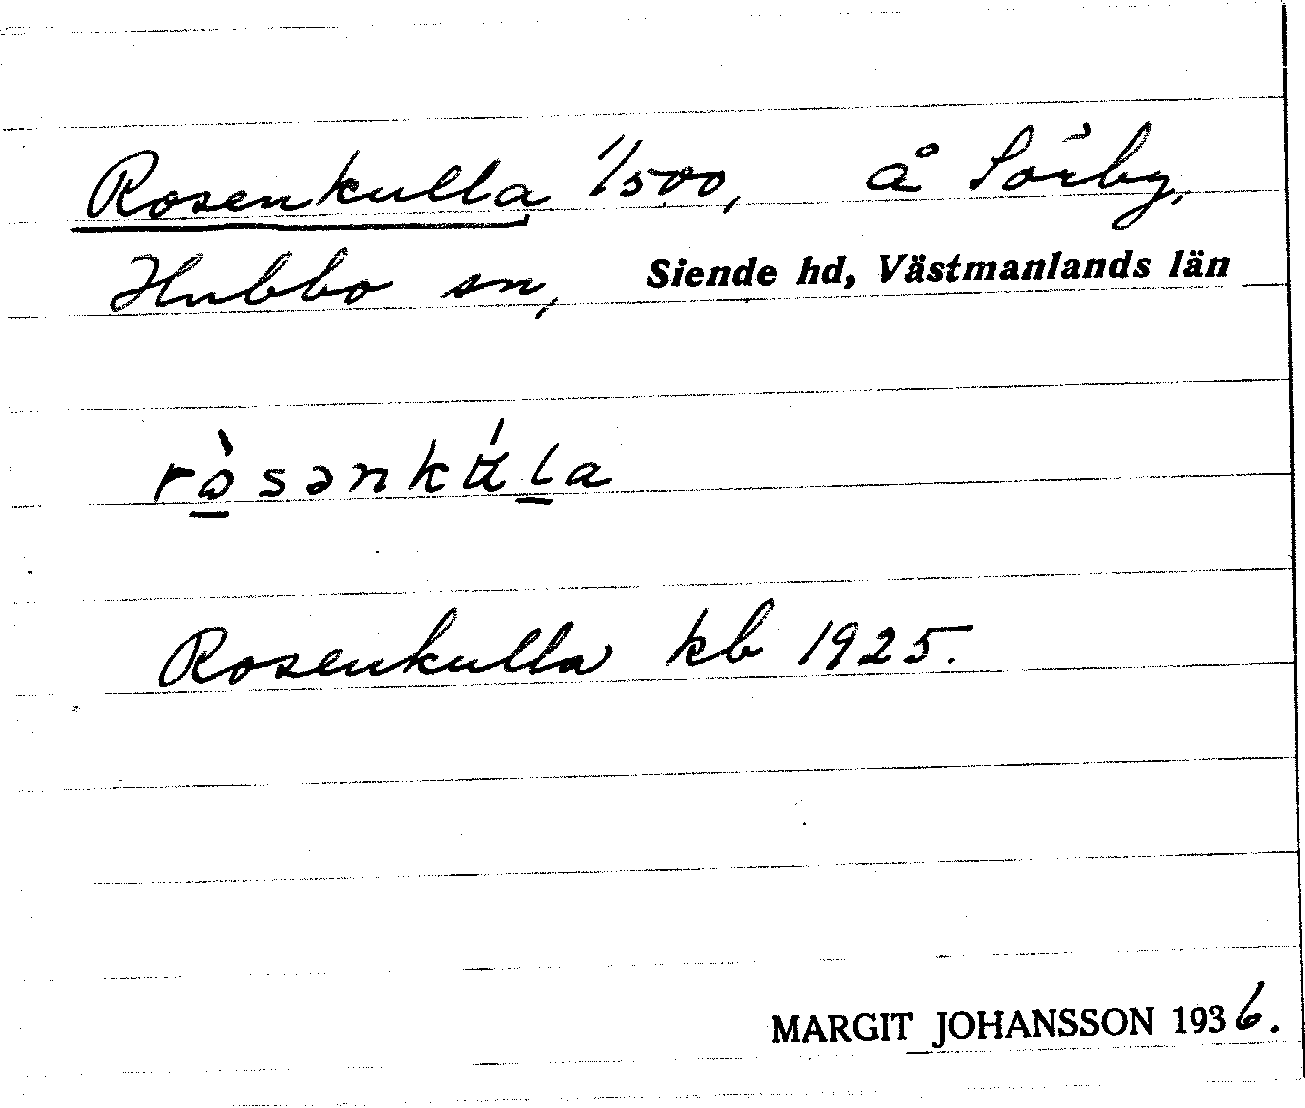 Rosenkulla 1/500, å Sörby,
Hubbo sn, Siende hd, Västmanlands län
rò̱sənkúḻa
Rosenkulla kb 1925.
MARGIT JOHANSSON 1936.